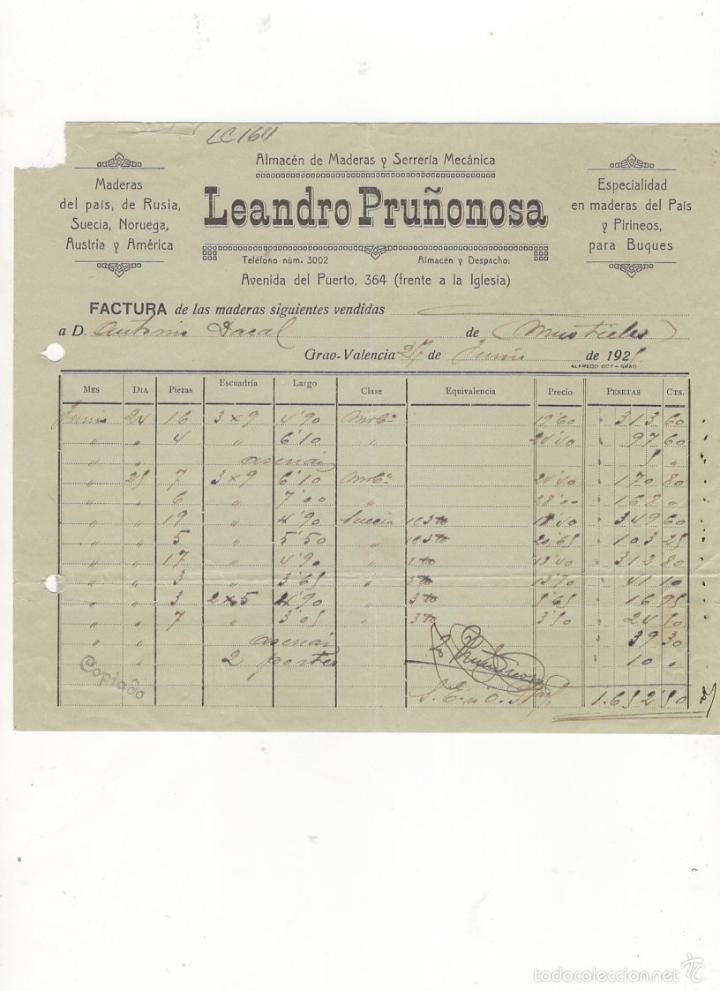 LC1611
Almacén de Maderas y Serrería Mecánica
Maderas
del país, de Rusia,
Suecia, Noruega,
Austria y América
Leandro Pruñonosa
Especialidad
en maderas del País
y Pirineos,
para Buques
Teléfono núm. 3002 Almacén y Despacho:
Avenida del Puerto, 364 (frente a la Iglesia)
FACTURA de las maderas siguientes vendidas
a D. Antonio Dacal de
Grao-Valencia de Junio de 192
MES DIA Piezas Escuadría Largo Clase Equivalencia Precio PESETAS CTS.
Junio 24 16 3 x 9 4'90 19'60 313 60
" " 4 " 6'10 " 24'40 97 60
" "
" 25 7 3 x 9 6'10 24'40 170 80
" " 6 " 7'00 " 28'00 168 "
" " 19 " 4'90 Suecia 18'40 349 60
" " 5 " 5'50 " 20'65 103 25
" " 17 " 4'90 " 18'40 312 80
" " 3 " 3'65 " 13'70 41 10
" " 3 2 x 5 4'90 5'65 16 95
" " 7 " 3'05 3'50 24 50
" " 39 30
" 2 portes 10 "
Copiado
S. E. u O. 1.652 50
todocoleccion.net